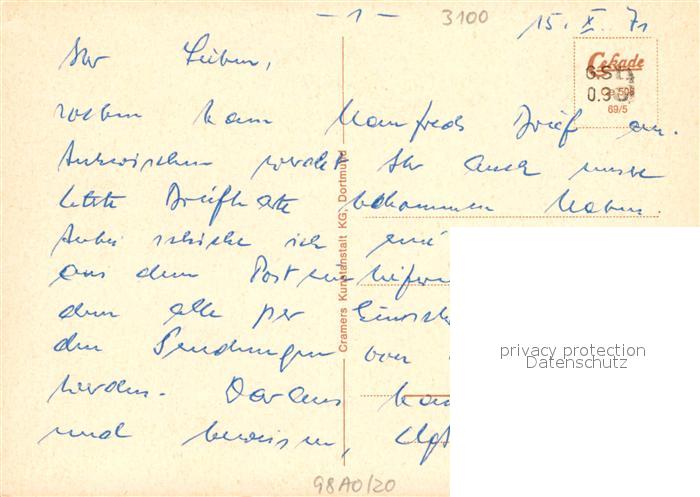 - 1 -
3100
15. X. 71
Cekade
69/5
Ihr Lieben,
soeben kam Manfreds Brief an.
Inzwischen werdet Ihr auch unsere
letzte Briefkarte bekommen haben.
Anbei schicke ich
aus dem
dem alle per
den Sendungen von
werden. Daraus
und beweisen,
Cramers Kunstanstalt KG, Dortmund
privacy protection
Datenschutz
98A0/20